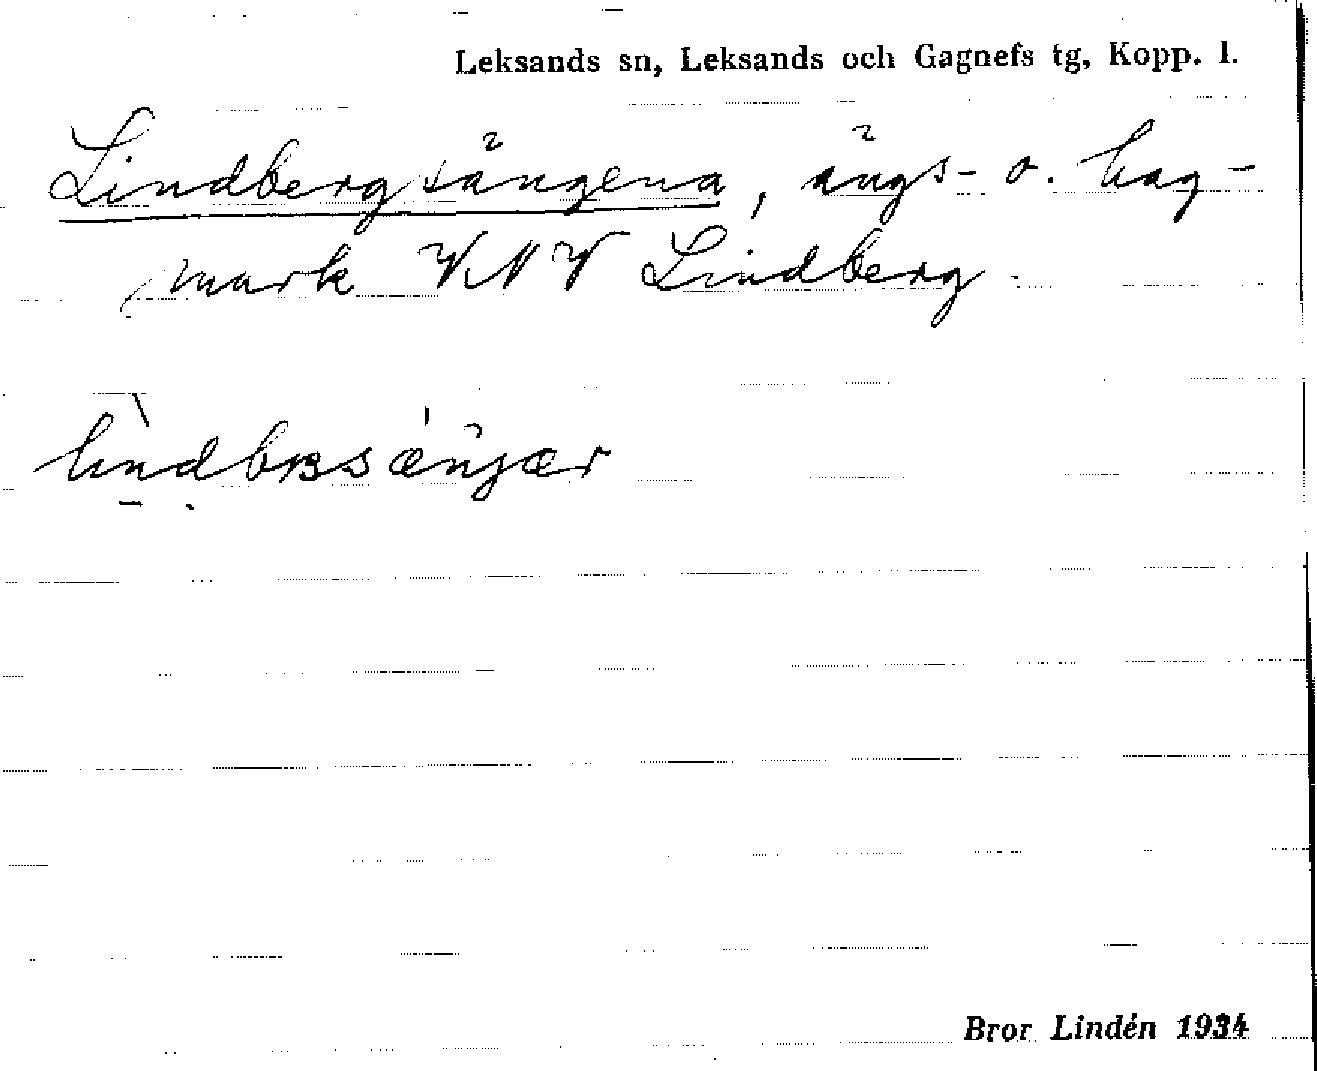 Leksands sn, Leksands och Gagnefs tg, Kopp. l.
Lindbergsängena, ängs- o. hag-
mark VNV Lindberg.
Bror Lindén 1934